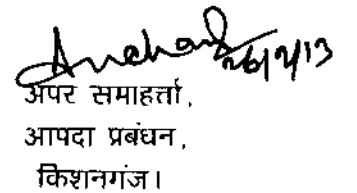 26/2/13
अपर समाहर्त्ता,
आपदा प्रबंधन,
किशनगंज।